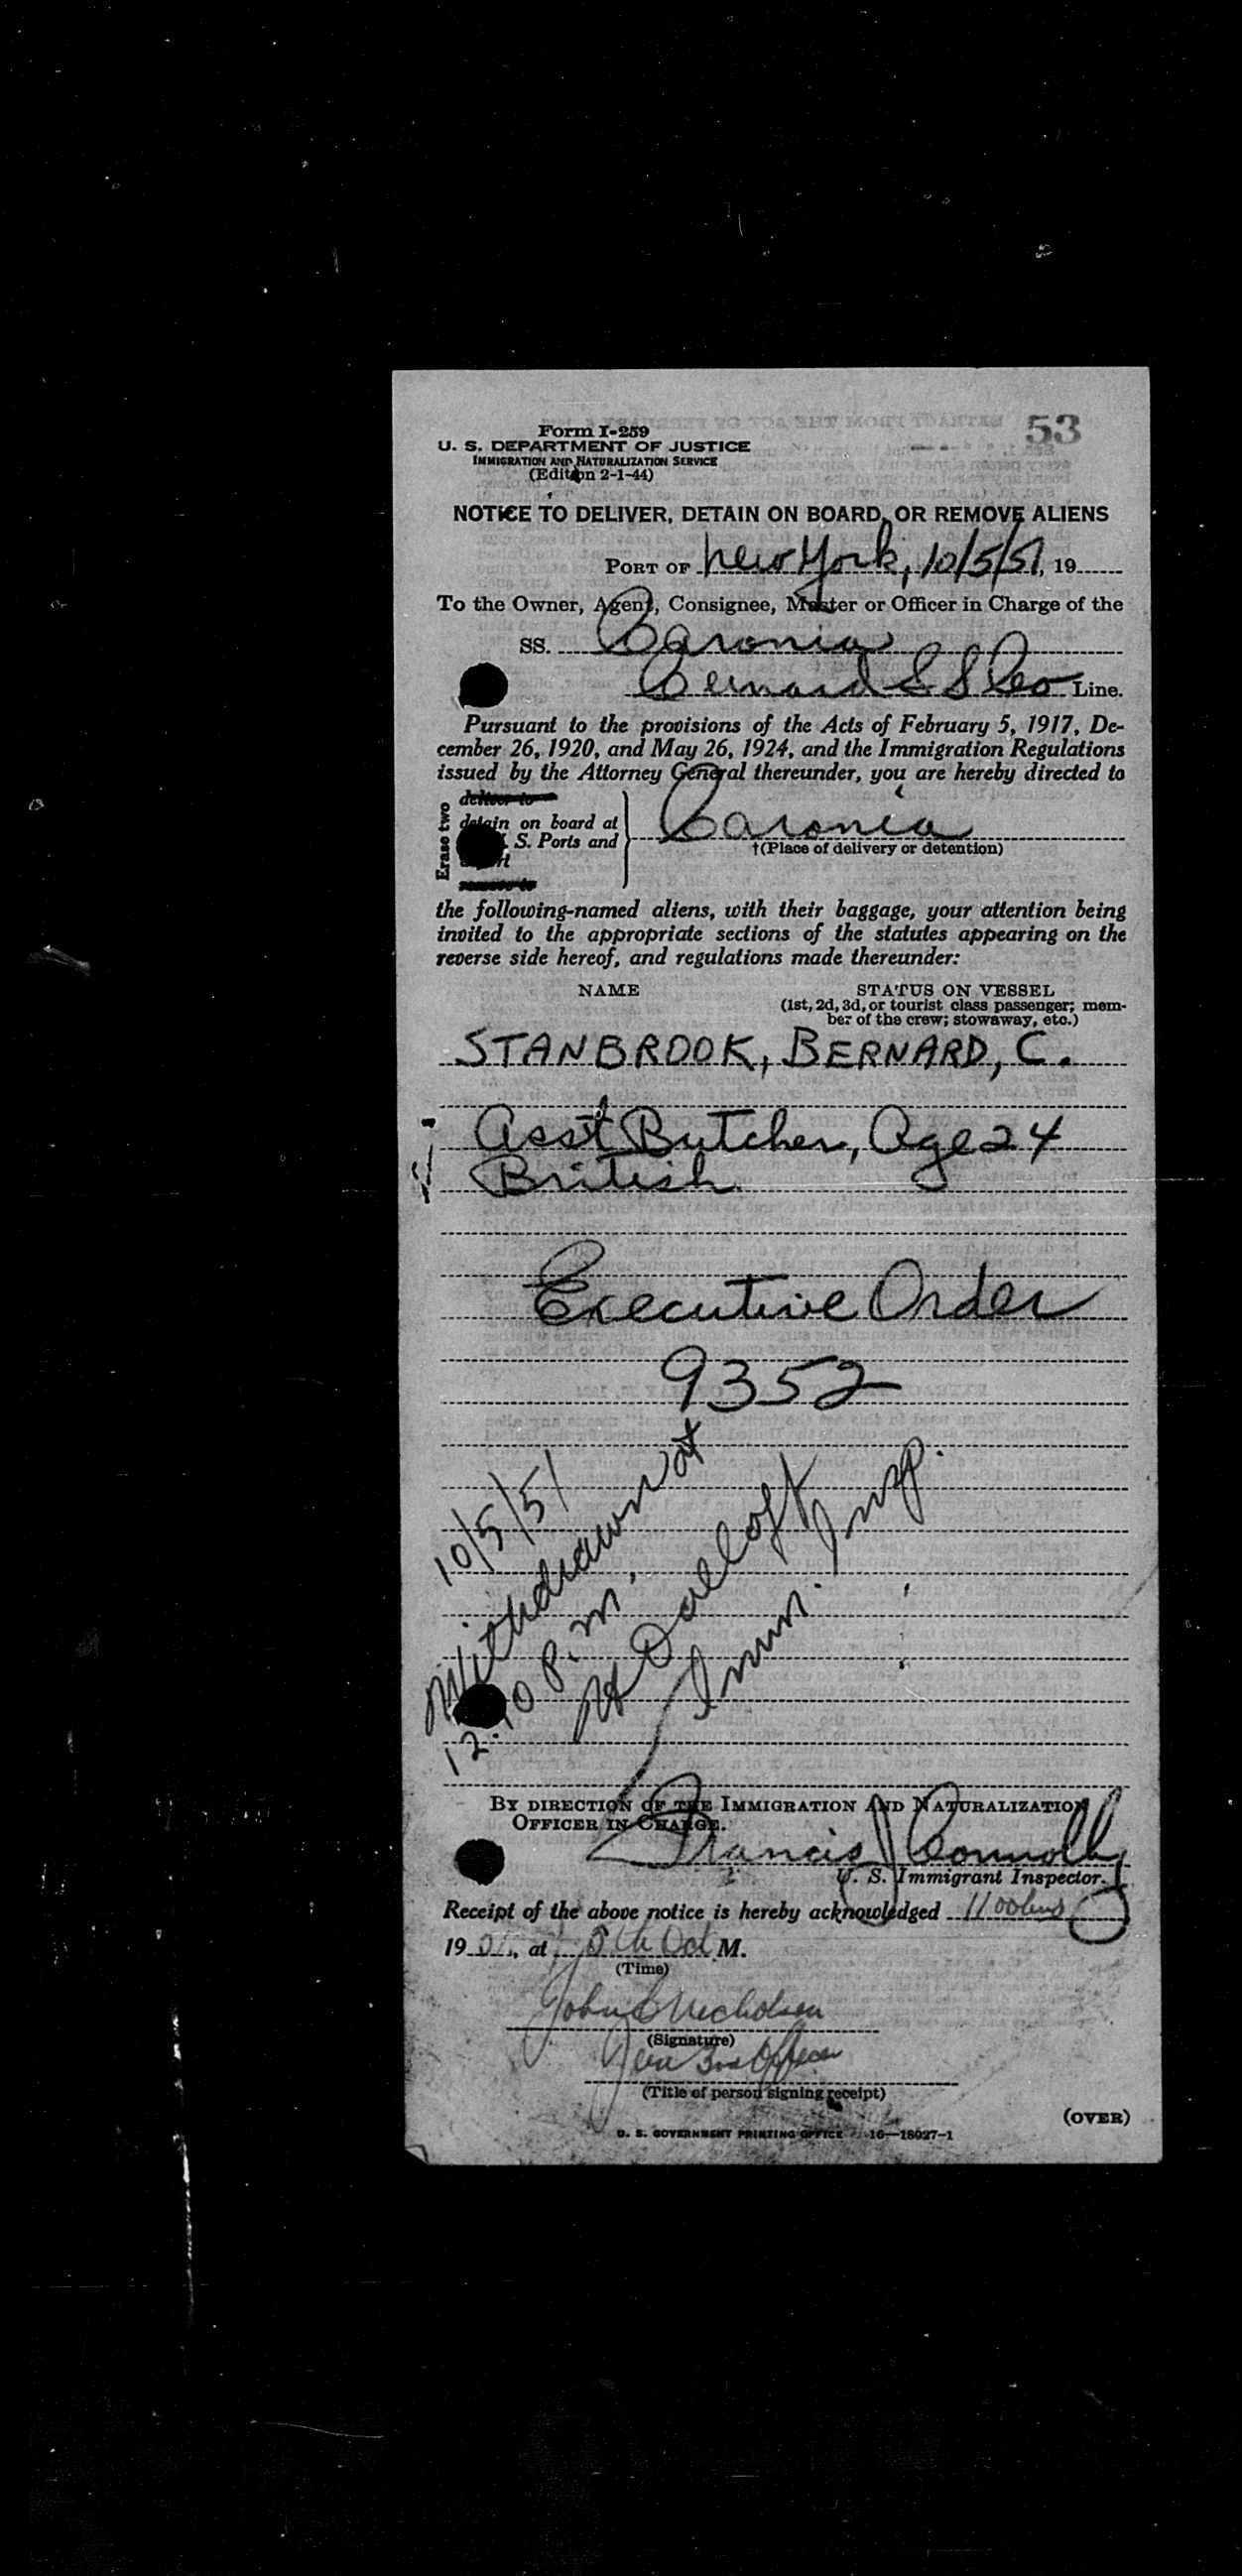 53
Form I-259
U. S. DEPARTMENT OF JUSTICE
IMMIGRATION AND NATURALIZATION SERVICE
(Edition 2-1-44)
NOTICE TO DELIVER, DETAIN ON BOARD, OR REMOVE ALIENS
PORT OF New York, 10/5/51, 19
To the Owner, Agent, Consignee, Master or Officer in Charge of the
SS. Caronia
Line.
Pursuant to the provisions of the Acts of February 5, 1917, De-
cember 26, 1920, and May 26, 1924, and the Immigration Regulations
issued by the Attorney General thereunder, you are hereby directed to
Erase two
deliver to
detain on board at
S. Ports and
remove to
Caronia
†(Place of delivery or detention)
the following-named aliens, with their baggage, your attention being
invited to the appropriate sections of the statutes appearing on the
reverse side hereof, and regulations made thereunder:
NAME STATUS ON VESSEL
(1st, 2d, 3d, or tourist class passenger; mem-
ber of the crew; stowaway, etc.)
STANBROOK, BERNARD, C.
Asst Butcher, Age 24
British
Executive Order
9352
10/5/51
Withdrawn at
12:10 P.M.
Imm. Insp.
BY DIRECTION OF THE IMMIGRATION AND NATURALIZATION
OFFICER IN CHARGE.
Francis J Connolly
U. S. Immigrant Inspector.
Receipt of the above notice is hereby acknowledged 1100hrs
19 at 5th Oct M.
(Time)
John Nicholson
(Signature)
Officer
(Title of person signing receipt)
(OVER)
U. S. GOVERNMENT PRINTING OFFICE 16—18027-1